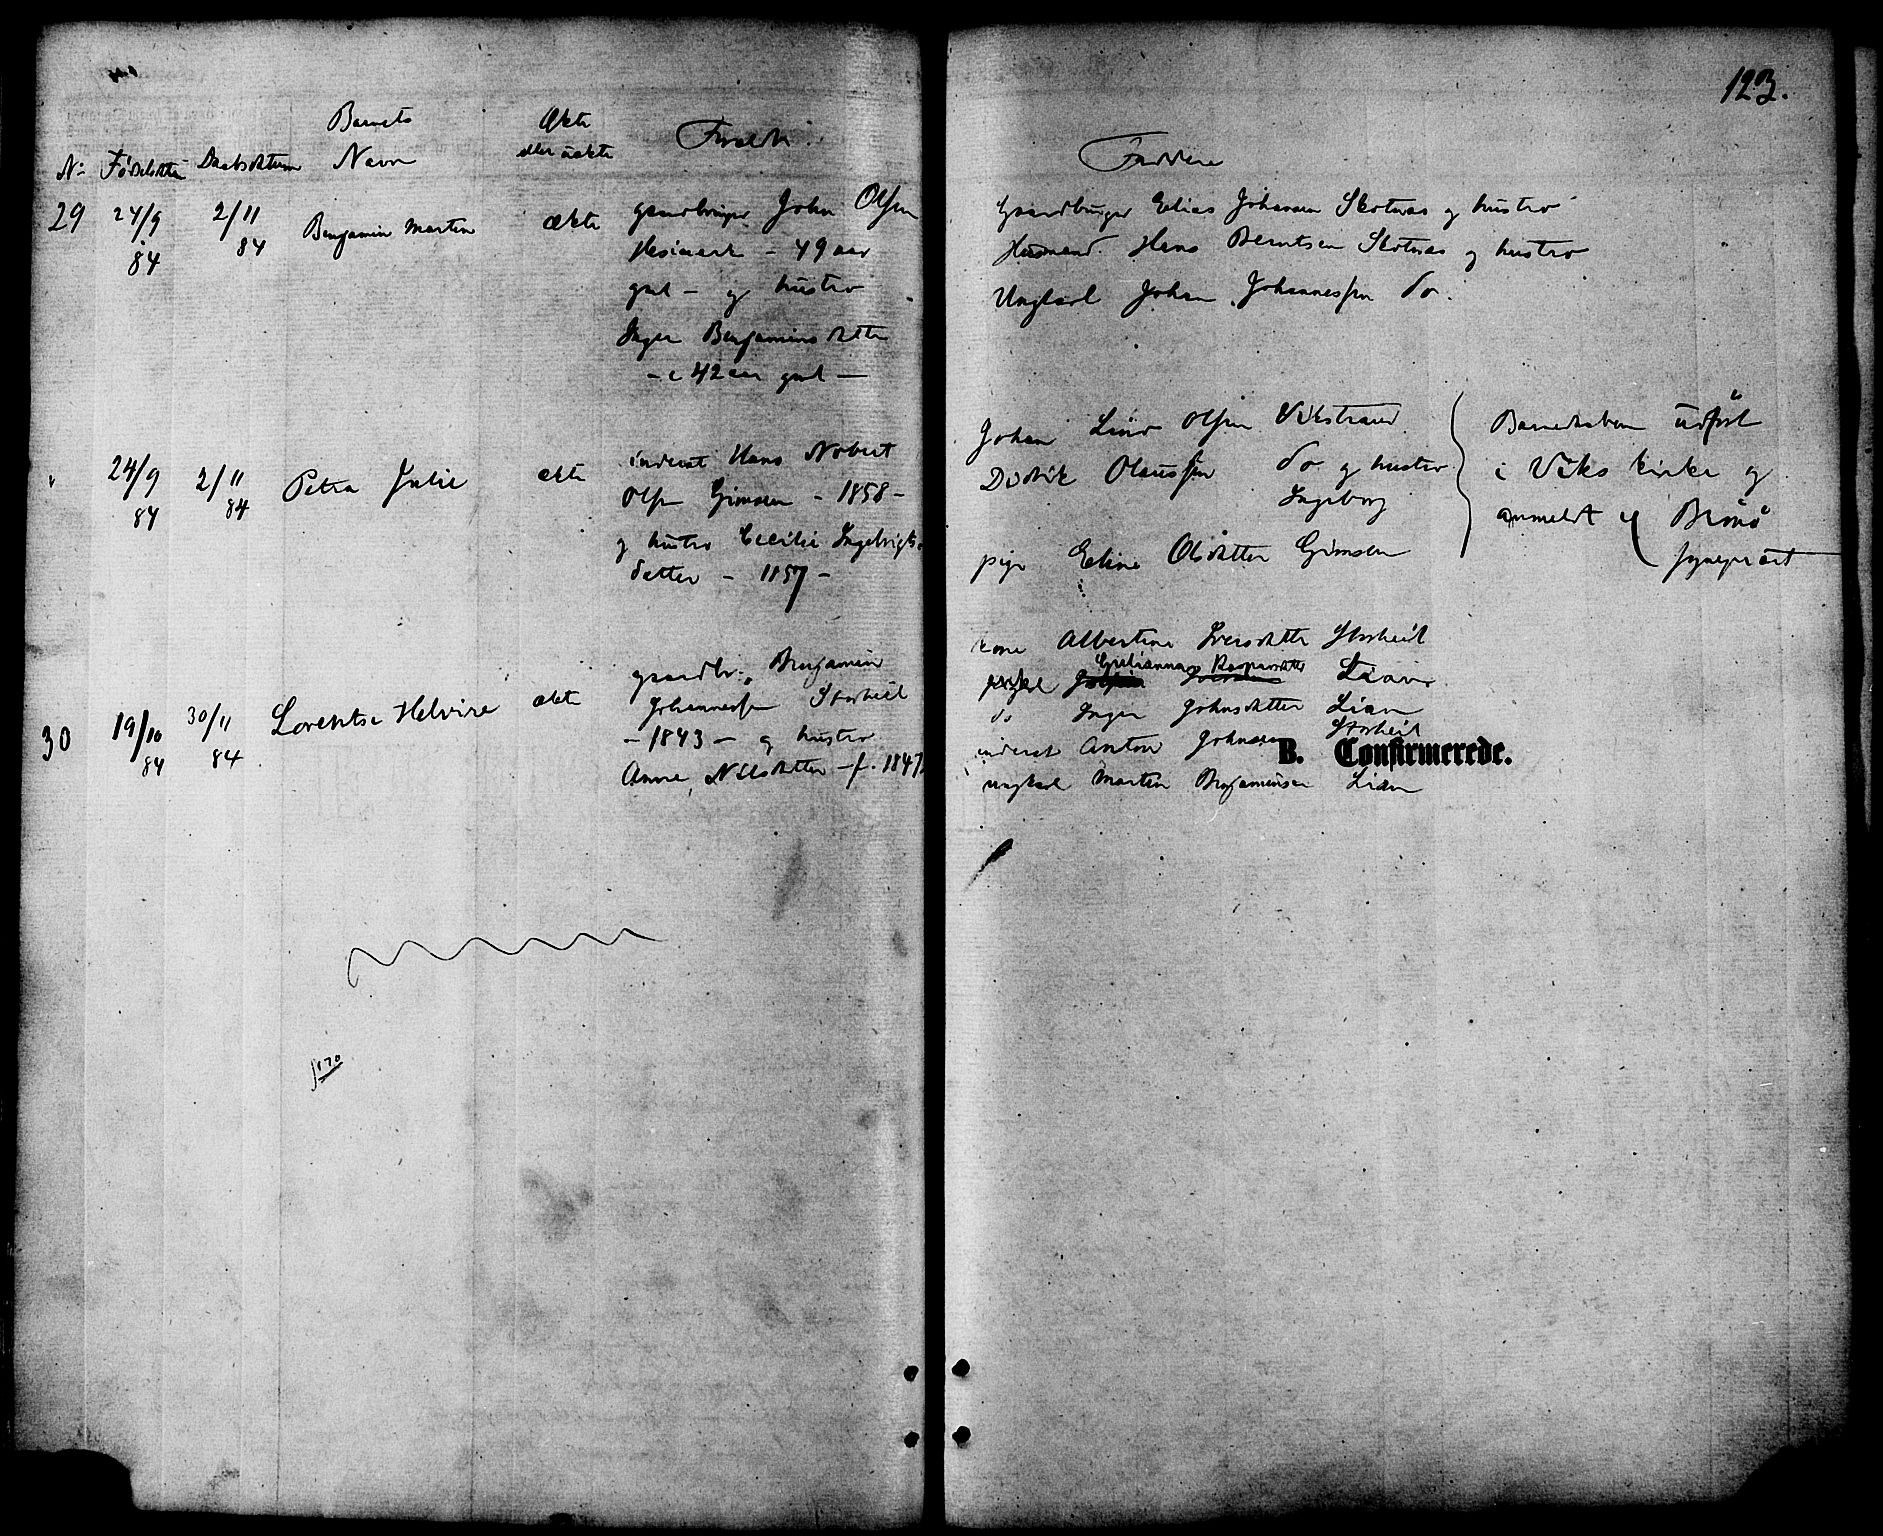 123.
Barnets
Navn
Ækte
eller uækte
No
Daabsdatum
Faddere
29
24/9
84
2/11
84
Benjamin Martin
ækte
John Olsen
- 49 aar
gml - og hustro
Inger Benjaminsdatter
- 42 aar gml -
Gaardbruger Elias Johansen Skotnes og hustro
Husmand Hans Berntsen Skotnes og hustro
Ungkarl Johan Johannessen do.
24/9
84
2/11
84
Petra Julie
ækte
inderst Hans Nobert
Olsen Gimsen - 1858 -
og hustro Cecilie Ingebrigts-
datter - 1857 -
Johan Olsen Vikstrand
Didrik Olaussen do og hustro
Ingeborg
pige Eline Olsdatter Gimsen
Barnedaaben udført
i Viks kirke og
anmeldt Brønø
sogneprest
30
19/10
84
30/11
84
Lorentse Helvine
ækte
gaardbr. Benjamin
Johannessen Storheil
- 1843 - og hustro
Anne Nilsdatter - f. 1847
kone Albertine Iversdatter Storheil
do Inger Johnsdatter Lian
Storheil
inderst Anton Johnsen
ungkarl Martin Benjaminsen Lian
B. Confirmerede.